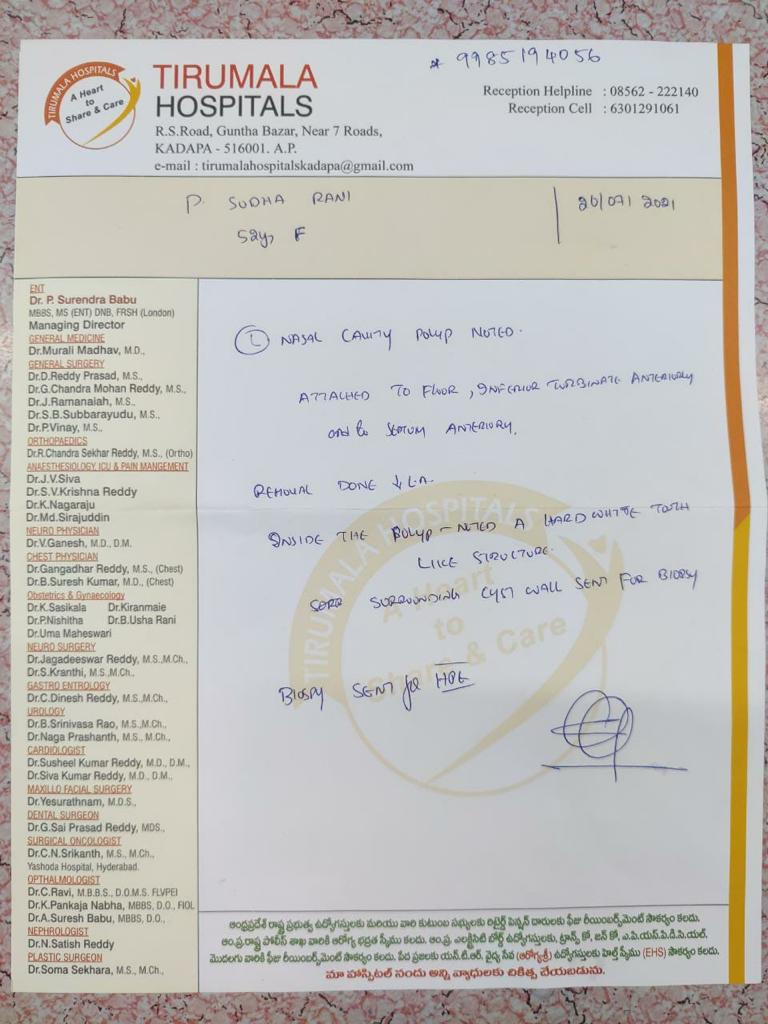 * 9985194056
TIRUMALA HOSPITALS
A Heart
to
Share & Care
TIRUMALA
HOSPITALS
R.S.Road, Guntha Bazar, Near 7 Roads,
KADAPA - 516001. A.P.
e-mail : tirumalahospitalskadapa@gmail.com
Reception Helpline : 08562 - 222140
Reception Cell : 6301291061
P. SUDHA RANI
52y, F
20/07/2021
ENT
Dr. P. Surendra Babu
MBBS, MS (ENT) DNB, FRSH (London)
Managing Director
GENERAL MEDICINE
Dr.Murali Madhav, M.D.,
GENERAL SURGERY
Dr.D.Reddy Prasad, M.S.,
Dr.G.Chandra Mohan Reddy, M.S.,
Dr.J.Ramanaiah, M.S.,
Dr.S.B.Subbarayudu, M.S.,
Dr.P.Vinay, M.S.,
ORTHOPAEDICS
Dr.R.Chandra Sekhar Reddy, M.S., (Ortho)
ANAESTHESIOLOGY, ICU & PAIN MANGEMENT
Dr.J.V.Siva
Dr.S.V.Krishna Reddy
Dr.K.Nagaraju
Dr.Md.Sirajuddin
NEURO PHYSICIAN
Dr.V.Ganesh, M.D., D.M.
CHEST PHYSICIAN
Dr.Gangadhar Reddy, M.S., (Chest)
Dr.B.Suresh Kumar, M.D., (Chest)
Obstetrics & Gynaecology
Dr.K.Sasikala Dr.Kiranmaie
Dr.P.Nishitha Dr.B.Usha Rani
Dr.Uma Maheswari
NEURO SURGERY
Dr.Jagadeeswar Reddy, M.S.,M.Ch.,
Dr.S.Kranthi, M.S.,M.Ch.,
GASTRO ENTROLOGY
Dr.C.Dinesh Reddy, M.S.,M.Ch.,
UROLOGY
Dr.B.Srinivasa Rao, M.S.,M.Ch.,
Dr.Naga Prashanth, M.S., M.Ch.,
CARDIOLOGIST
Dr.Susheel Kumar Reddy, M.D., D.M.,
Dr.Siva Kumar Reddy, M.D., D.M.,
MAXILLO FACIAL SURGERY
Dr.Yesurathnam, M.D.S.,
DENTAL SURGEON
Dr.G.Sai Prasad Reddy, MDS.,
SURGICAL ONCOLOGIST
Dr.C.N.Srikanth, M.S., M.Ch.,
Yashoda Hospital, Hyderabad.
OPTHALMOLOGIST
Dr.C.Ravi, M.B.B.S., D.O.M.S. FLVPEI
Dr.K.Pankaja Nabha, MBBS, D.O., FIOL
Dr.A.Suresh Babu, MBBS, D.O.,
NEPHROLOGIST
Dr.N.Satish Reddy
PLASTIC SURGEON
Dr.Soma Sekhara, M.S., M.Ch.,
(L) NASAL CAVITY POLYP NOTED.
ATTACHED TO FLOOR, INFERIOR TURBINATE ANTERIORLY
and to SEPTUM ANTERIORLY.
REMOVAL DONE ↓ L.A.
INSIDE THE POLYP - NOTED A HARD WHITE TOOTH
LIKE STRUCTURE.
SURROUNDING CYST WALL SENT FOR BIOPSY
BIOSPY SENT for HPE
TIRUMALA HOSPITALS
A Heart
to
Share & Care
ఆంధ్రప్రదేశ్ రాష్ట్ర ప్రభుత్వ ఉద్యోగస్తులకు మరియు వారి కుటుంబ సభ్యులకు రిటైర్డ్ పెన్షన్ దారులకు ఫీజు రీయింబర్స్‌మెంట్ సౌకర్యం కలదు.
ఆం.ప్ర.రాష్ట్ర పోలీస్ శాఖ వారికి ఆరోగ్య భద్రత స్కీము కలదు. ఆం.ప్ర. ఎలక్ట్రిసిటి బోర్డ్ ఉద్యోగస్తులకు, ట్రాన్స్ కో, జన్ కో, ఎ.పి.యస్.పి.డి.సి.యల్.
మొదలగు వారికి ఫీజు రీయింబర్స్‌మెంట్ సౌకర్యం కలదు. పేద ప్రజలకు యన్.టి.ఆర్. వైద్య సేవ (ఆరోగ్యశ్రీ) ఉద్యోగస్తులకు హెల్త్ స్కీము (EHS) సౌకర్యం కలదు.
మా హాస్పిటల్ నందు అన్ని వ్యాధులకు చికిత్స చేయబడును.